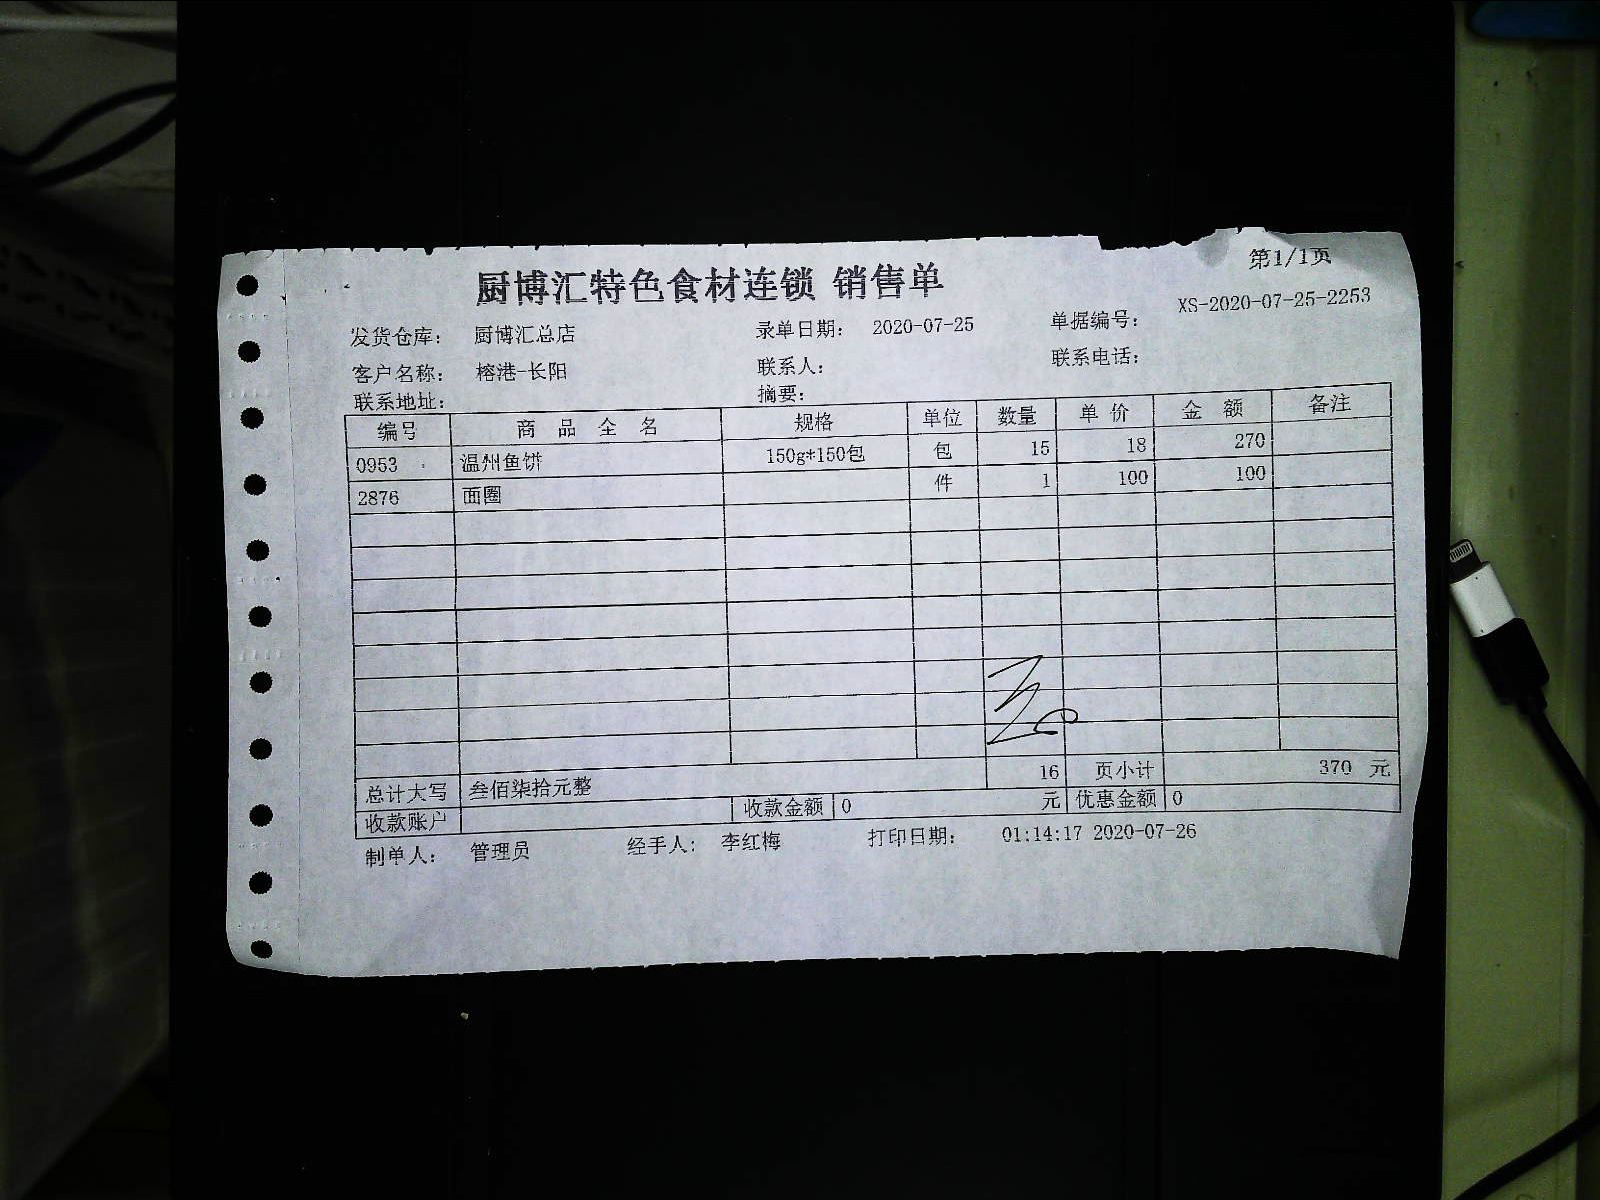 第1/1页
厨博汇特色食材连锁 销售单
发货仓库： 厨博汇总店 录单日期： 2020-07-25 单据编号： XS-2020-07-25-2253
客户名称： 榕港-长阳 联系人： 联系电话：
联系地址： 摘要：
编号 商 品 全 名 规格 单位 数量 单 价 金 额 备注
0953 温州鱼饼 150g*150包 包 15 18 270
2876 面圈 件 1 100 100
总计大写 叁佰柒拾元整 16 页小计 370 元
收款账户 收款金额 0 元 优惠金额 0
制单人： 管理员 经手人： 李红梅 打印日期： 01:14:17 2020-07-26